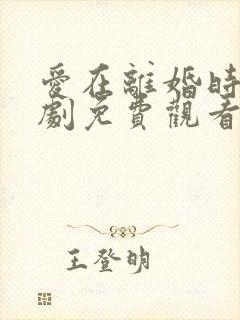 愛在離婚時
劇免費觀看
王登明